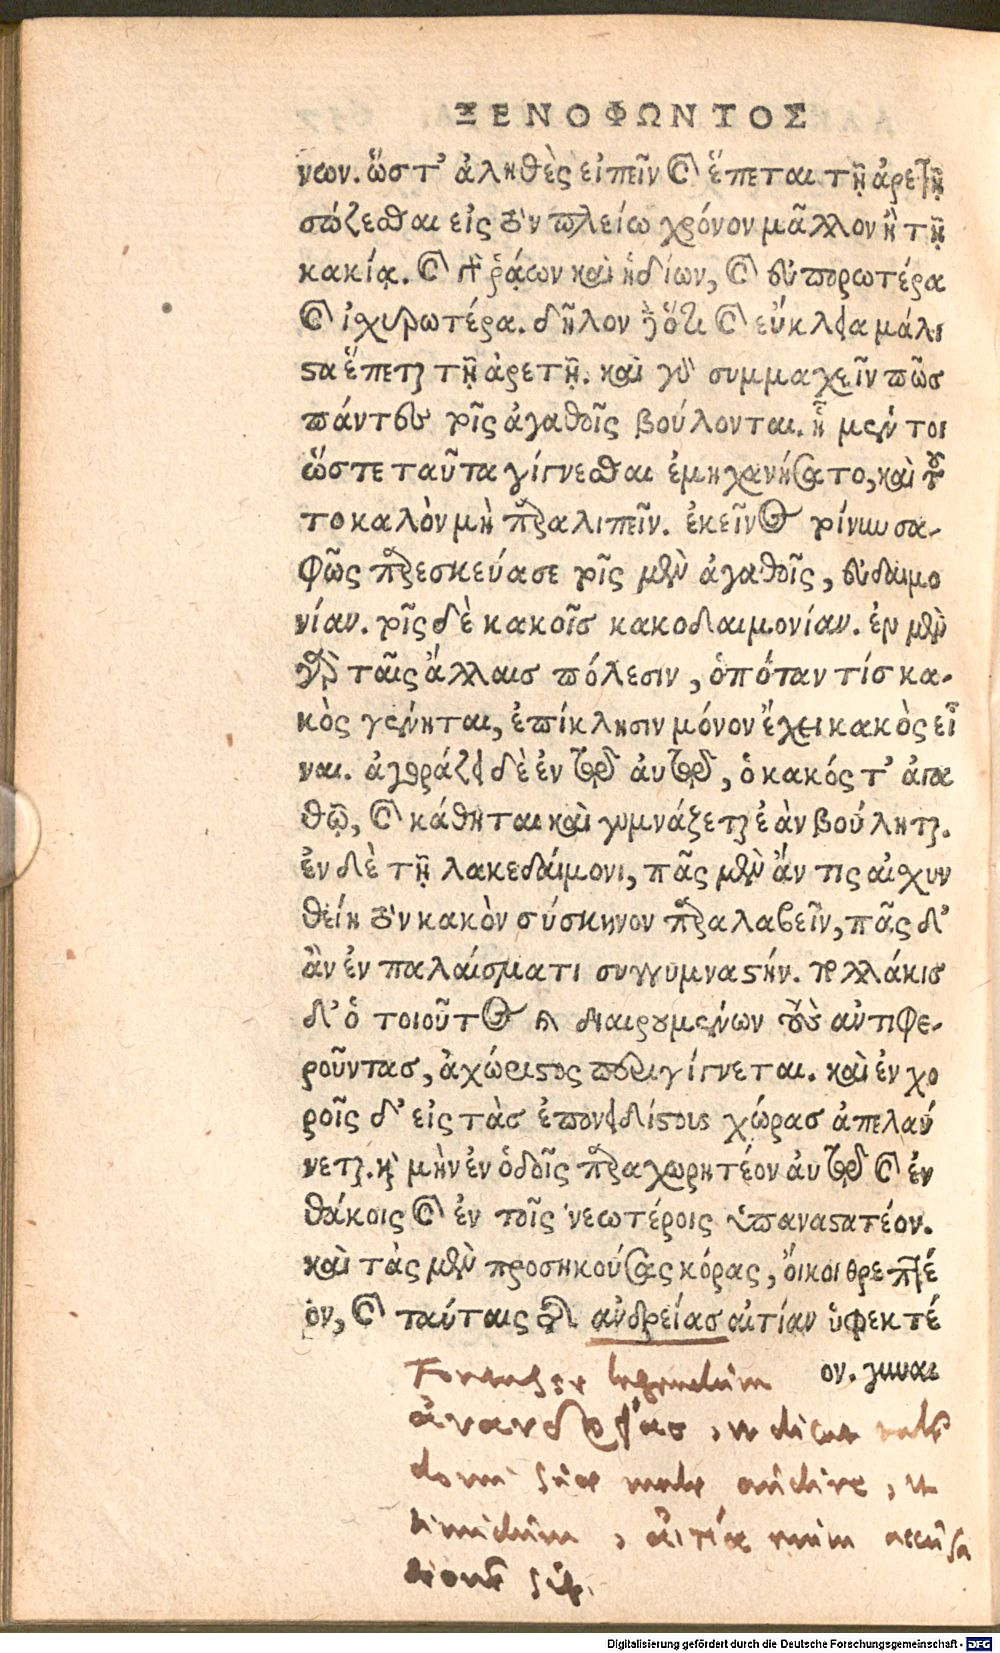 ΞΕΝΟΦΩΝΤΟΣ
νων. ὥστ' ἀληθὲς εἰπεῖν καὶ ἕπεται τῇ ἀρετῇ
σώζεσθαι εἰς τὸν πλείω χρόνον μᾶλλον ἢ τῇ
κακίᾳ. καὶ γὰρ ῥᾴων καὶ ἡδίων, καὶ εὐπορωτέρα
καὶ ἰσχυρωτέρα. δῆλον δὲ ὅτι καὶ εὔκλεια μάλι
στα ἕπεται τῇ ἀρετῇ. καὶ γὰρ συμμαχεῖν πῶσ
πάντες τοῖς ἀγαθοῖς βούλονται. ᾗ μέντοι
ὥστε ταῦτα γίγνεσθαι ἐμηχανήσατο, καὶ τοῦ
το καλὸν μὴ παραλιπεῖν. ἐκεῖνος τοίνυν σα-
φῶς παρεσκεύασε τοῖς μὲν ἀγαθοῖς, εὐδαιμο
νίαν. τοῖς δὲ κακοῖσ κακοδαιμονίαν. ἐν μὲν
γὰρ ταῖς ἄλλαισ πόλεσιν, ὁπόταν τίσ κα-
κὸς γένηται, ἐπίκλησιν μόνον ἔχει κακὸς εἶ
ναι. ἀγοράζει δὲ ἐν τῷ αὐτῷ, ὁ κακός τ' ἀγα
θῷ, καὶ κάθηται καὶ γυμνάζεται ἐὰν βούληται.
ἐν δὲ τῇ λακεδαίμονι, πᾶς μὲν ἄν τις αἰσχυν
θείη τὸν κακὸν σύσκηνον παραλαβεῖν, πᾶς δ'
ἂν ἐν παλαίσματι συγγυμναστήν. πολλάκισ
δ' ὁ τοιοῦτος καὶ διαιρουμένων τοὺς ἀντιφε-
ροῦντασ, ἀχώριστος περιγίγνεται. καὶ ἐν χο
ροῖς δ' εἰς τὰσ ἐπονειδίστους χώρασ ἀπελαύ
νεται. καὶ μὴν ἐν ὁδοῖς παραχωρητέον αὐτῷ καὶ ἐν
θάκοις καὶ ἐν τοῖς νεωτέροις ὑπαναστατέον.
καὶ τὰς μὲν προσηκούσας κόρας, οἴκοι θρεπτέ
ον, καὶ ταύταις τῆς ἀνδρείασ αἰτίαν ὑφεκτέ
ον. γυναι
Forte legendum
ἀνανδρείασ, ut dicat
domi suae male audire, ut
timidum, αἰτία enim accusa
tione
Digitalisierung gefördert durch die Deutsche Forschungsgemeinschaft - DFG